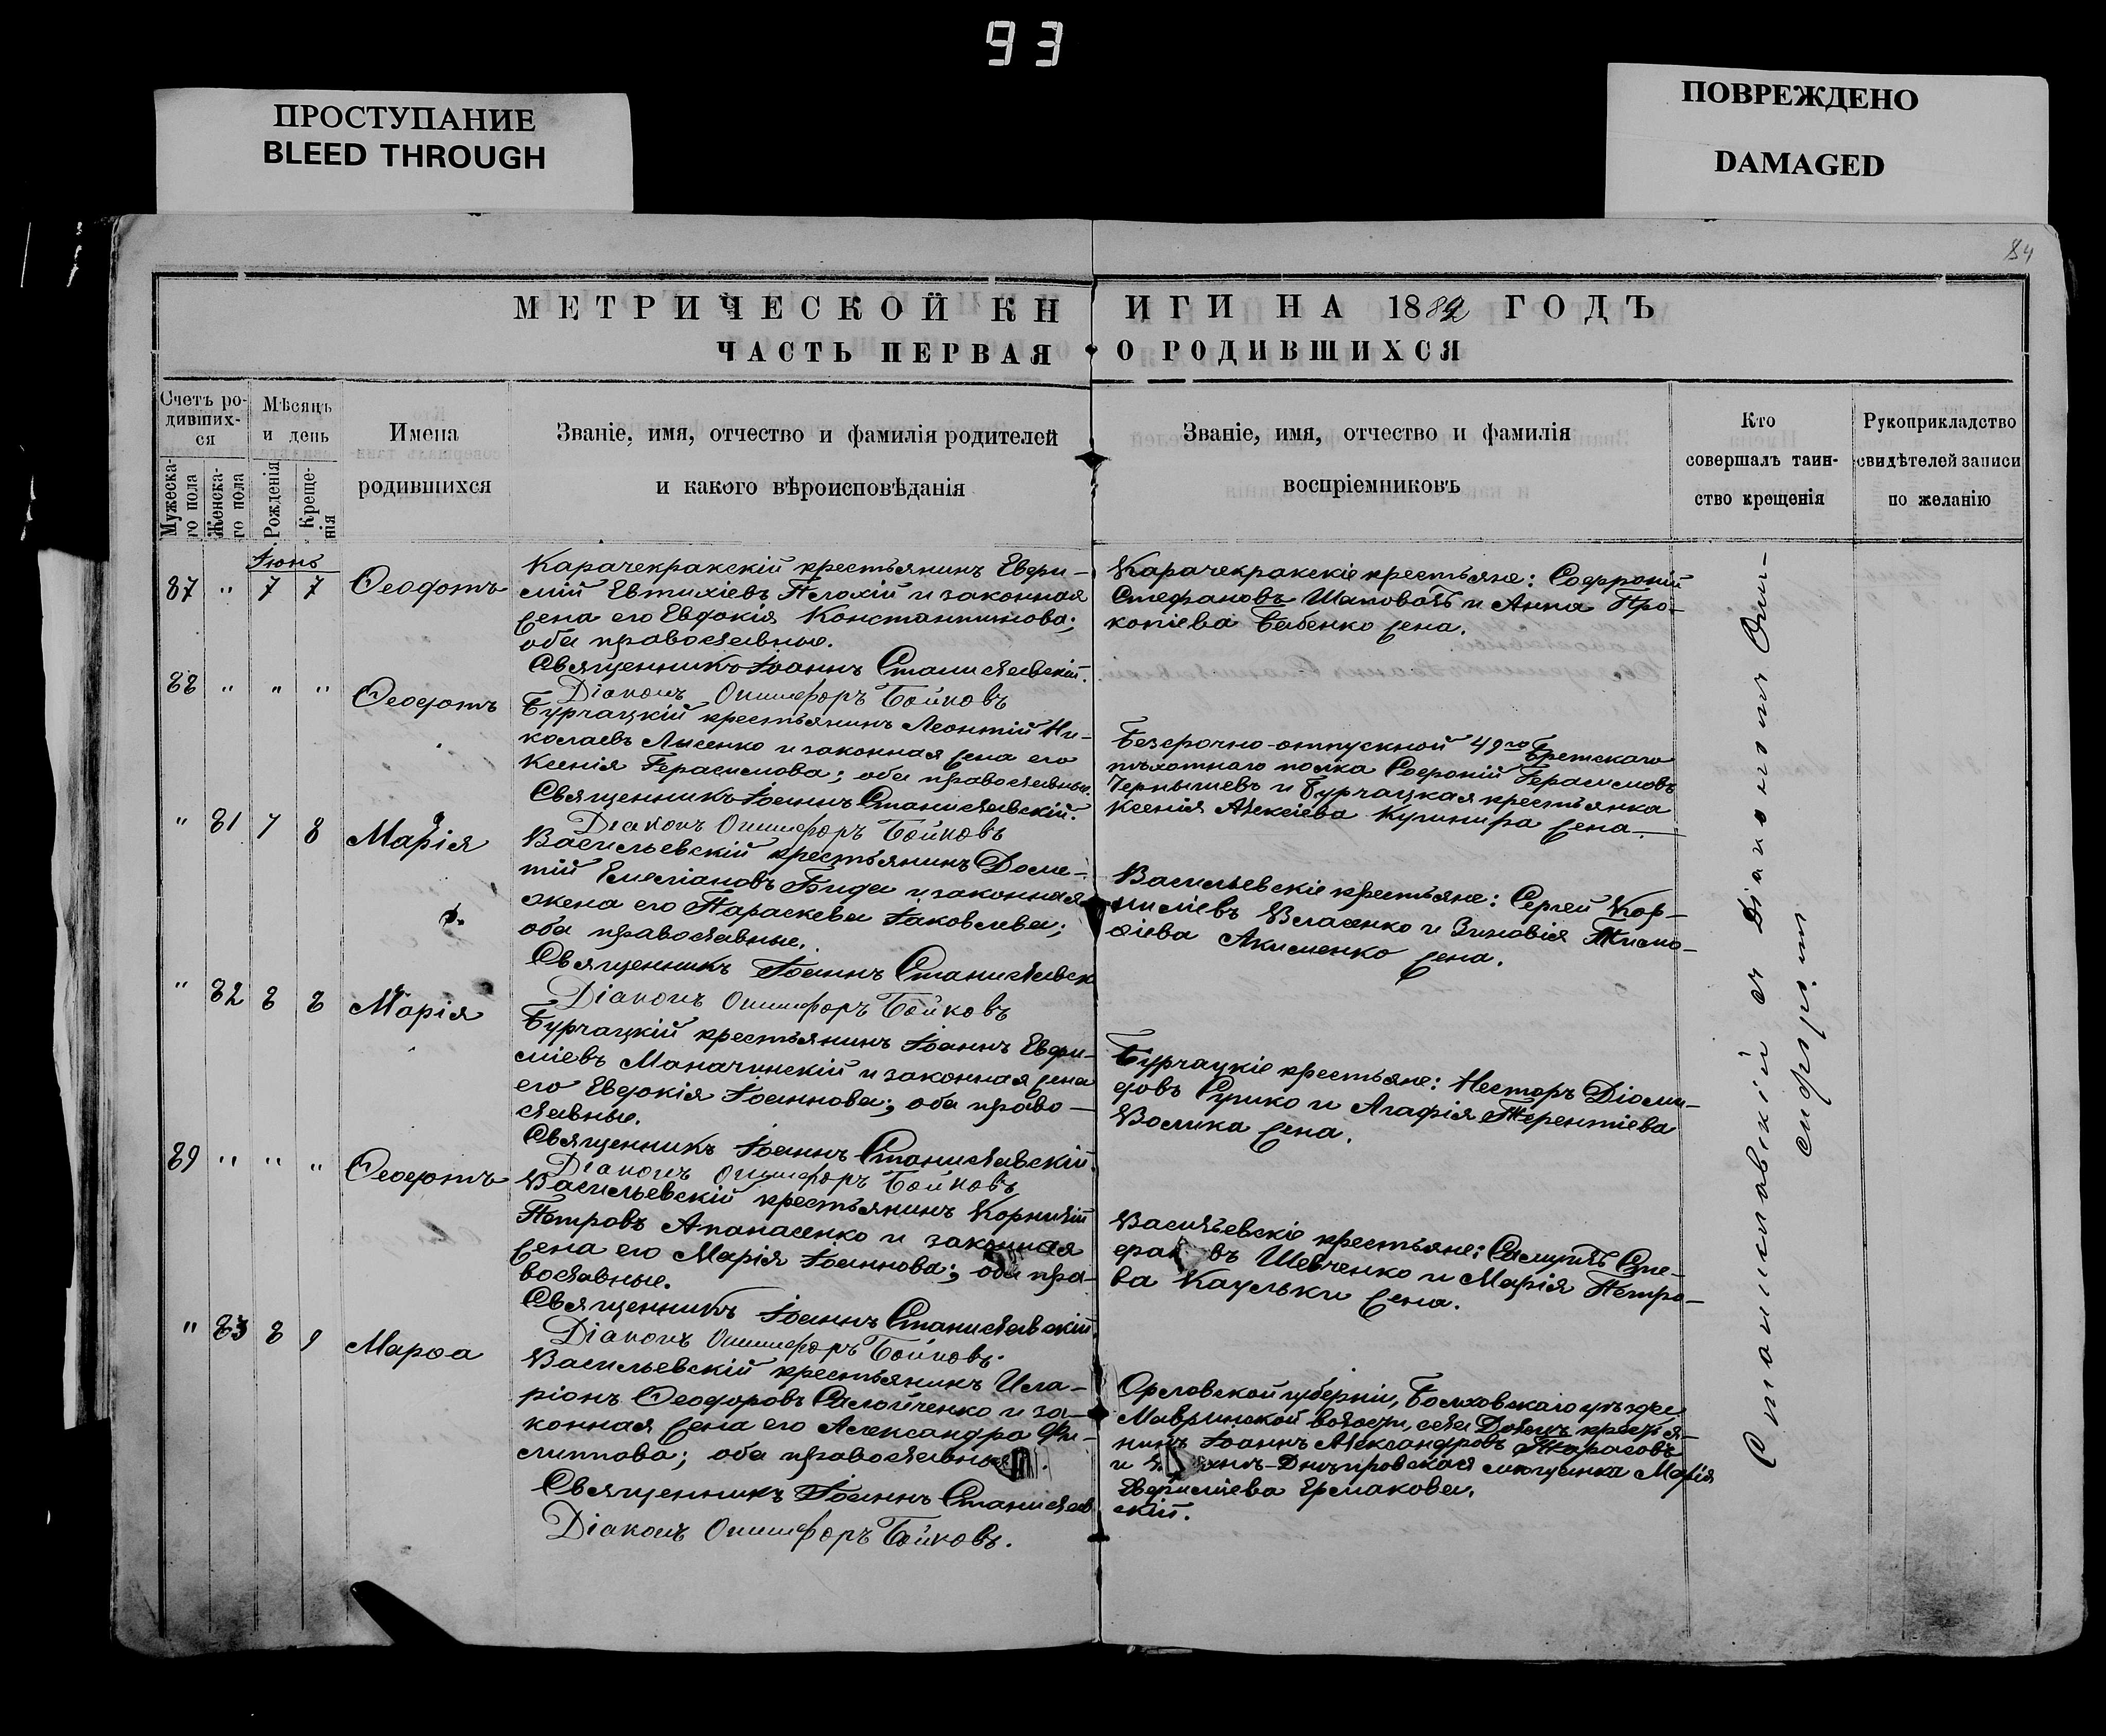 93
ПРОСТУПАНИЕ
BLEED THROUGH
ПОВРЕЖДЕНО
DAMAGED
84
МЕТРИЧЕСКОЙ КНИГИ НА 1882 ГОДЪ
ЧАСТЬ ПЕРВАЯ О РОДИВШИХСЯ
Счетъ ро-
дивших-
ся
Мужеска-
го пола
Женска-
го пола
Мѣсяцъ
и день
Рожденія
Креще-
нія
Имена
родившихся
Званіе, имя, отчество и фамилія родителей
и какого вѣроисповѣданія
Званіе, имя, отчество и фамилія
воспріемниковъ
Кто
совершалъ таин-
ство крещенія
Рукоприкладство
свидѣтелей записи
по желанію
Іюнь
87 " 7 7 Ѳеодотъ
Карачекракскій крестьянинъ Евѳи-
мій Евтихіевъ Плохій и законная
жена его Евдокія Константинова;
оба православные.
Священникъ Іоаннъ Станиславскій.
Діаконъ Онисифоръ Бойковъ
Карачекракскіе крестьяне: Софроній
Стефановъ Шаповалъ и Анна Про-
копіева Бабенко жена.
88 " " " Ѳеодотъ
Бурчацкій крестьянинъ Леонтій Ни-
колаевъ Лысенко и законная жена его
Ксенія Герасимова; оба православные.
Священникъ Іоаннъ Станиславскій.
Діаконъ Онисифоръ Бойковъ
Безсрочно-отпускной 49го Брестскаго
пѣхотнаго полка Софроній Герасимовъ
Чернышевъ и Бурчацкая крестьянка
Ксенія Алексіева Кушнира жена.
" 81 7 8 Марія
Васильевскій крестьянинъ Доме-
тій Емеліановъ Бида и законная
жена его Параскева Іаковлева;
оба православные.
Священникъ Іоаннъ Станиславск
Діаконъ Онисифоръ Бойковъ
Васильевскіе крестьяне: Сергей Кор-
ниліевъ Власенко и Зиновія Тимо-
ѳіева Акименко жена.
" 82 8 8 Марія
Бурчацкій крестьянинъ Іоаннъ Евѳи-
міевъ Маначинскій и законная жена
его Евдокія Іоаннова; оба право-
славные.
Священникъ Іоаннъ Станиславскій.
Діаконъ Онисифоръ Бойковъ
Бурчацкіе крестьяне: Несторъ Діоми-
довъ Сушко и Агафія Терентіева
Волика жена.
89 " " " Ѳеодотъ
Васильевскій крестьянинъ Корнилій
Петровъ Апанасенко и законная
жена его Марія Іоаннова; оба пра-
вославные.
Священникъ Іоаннъ Станиславскій.
Діаконъ Онисифоръ Бойковъ.
Васильевскіе крестьяне: Самуилъ Сте-
фан въ Шевченко и Марія Петро-
ва Каульки жена.
" 83 8 9 Марѳа
Васильевскій крестьянинъ Ила-
ріонъ Ѳеодоровъ Самойченко и за-
конная жена его Александра Фи-
липпова; оба православные.
Священникъ Іоаннъ Станислав
скій.
Діаконъ Онисифоръ Бойковъ.
Орловской губерніи, Болховскаго уѣзда
волости, села крестья-
нинъ Іоаннъ Александровъ Тарасовъ
и Днѣпровская мѣщанка Марія
Евѳиміева Ермакова.
Станиславскій съ Діакономъ Они-
сифоромъ